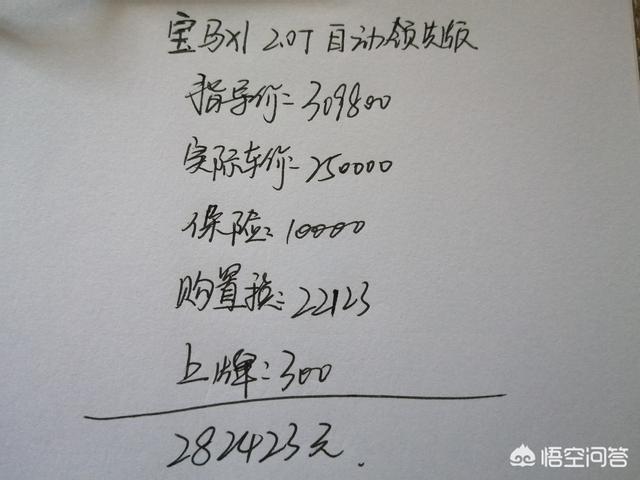 宝马X1 2.0T 自动领先版
指导价：309800
实际车价：250000
保险：10000
购置税：22123
上牌：300
282423元.
悟空问答